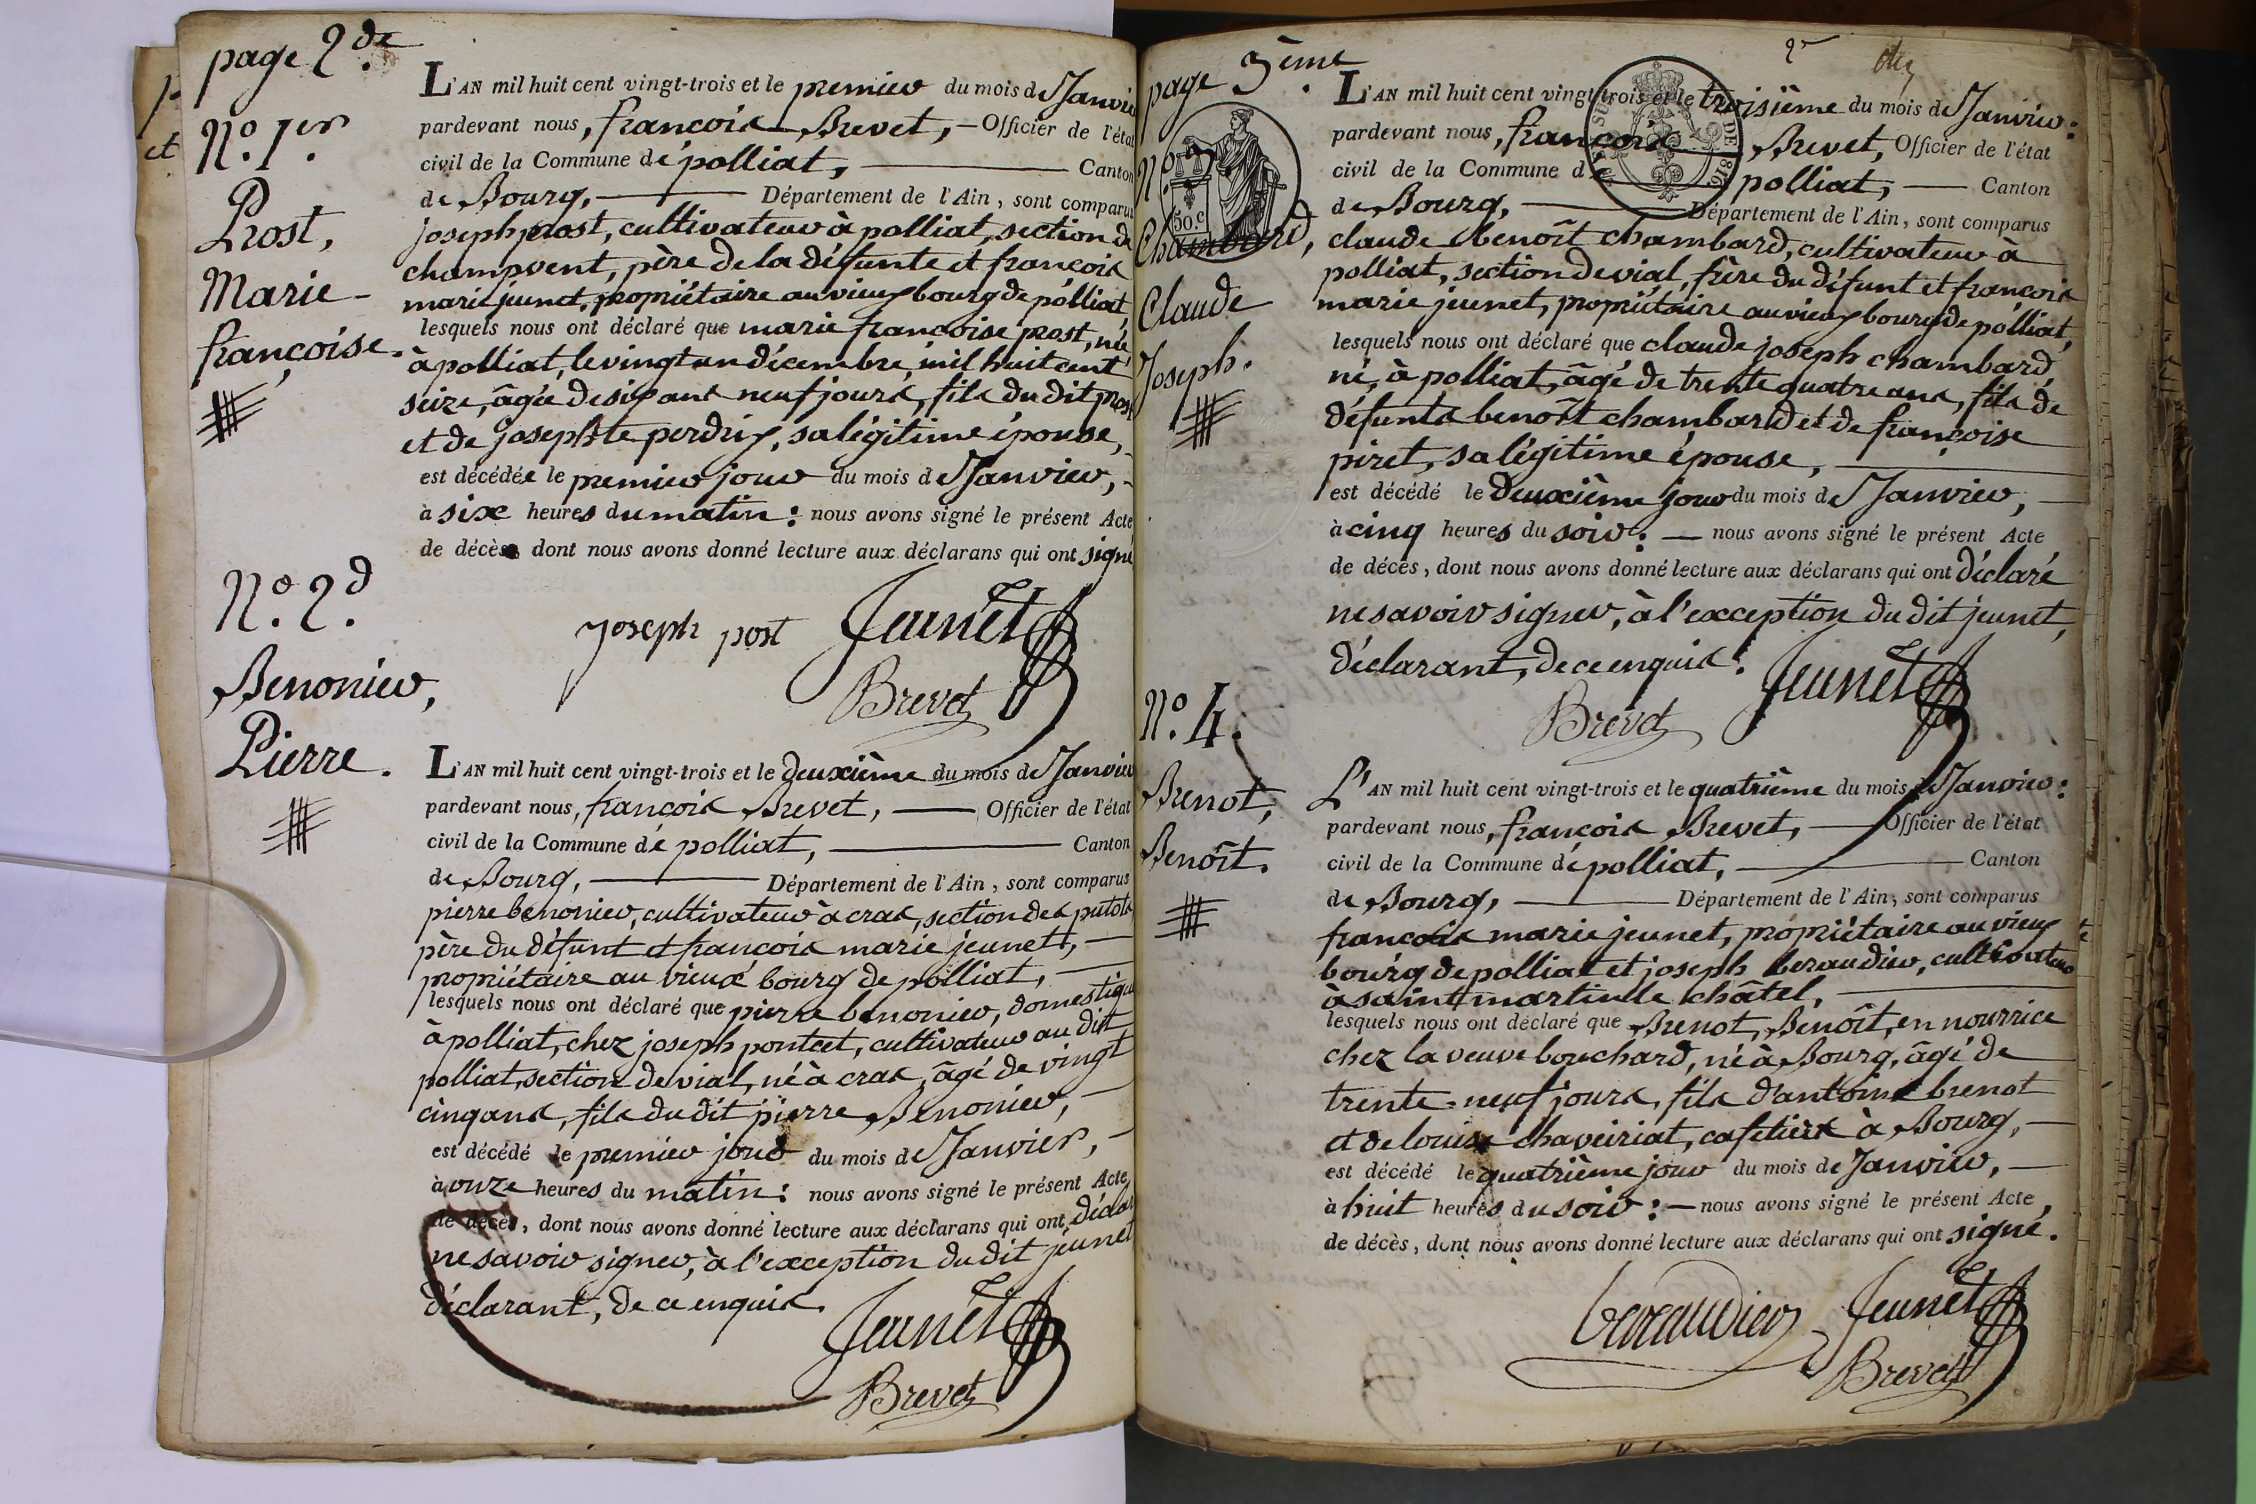 page 2de.
No. 1er.
Prost,
Marie-
françoise.
L'AN mil huit cent vingt-trois et le premier du mois de Janvier
pardevant nous, françois Brevet, — Officier de l'état
civil de la Commune de polliat, — Canton
de Bourg, — Département de l'Ain, sont comparus
joseph prost, cultivateur à polliat, section de
champvent, père de la défunte et françois
marie jeunet, propriétaire au vieux bourg de polliat
lesquels nous ont déclaré que marie françoise prost, née
à polliat, le vingt un décembre, mil huit cent
seize, âgée de six ans neuf jours, fille du dit prost
et de josephte perdrix, sa légitime épouse,
est décédée le premier jour du mois de Janvier,
à six heures du matin: nous avons signé le présent Acte
de décès dont nous avons donné lecture aux déclarans qui ont signé
joseph post Jeunet
Brevet
No. 2d.
Benonier,
Pierre.
L'AN mil huit cent vingt-trois et le deuxième du mois de Janvier
pardevant nous, françois Brevet, — Officier de l'état
civil de la Commune de polliat, — Canton
de Bourg, — Département de l'Ain, sont comparus
pierre benonier, cultivateur à cras, section des putots
père du défunt et françois marie jeunett, —
propriétaire au vieux bourg de polliat, —
lesquels nous ont déclaré que pierre benonier, domestique
à polliat, chez joseph pontcet, cultivateur au dit
polliat, section de vial, né à cras, âgé de vingt
cinq ans, fils du dit pierre Benonier, —
est décédé le premier jour du mois de Janvier, —
à onze heures du matin: nous avons signé le présent Acte
de décès, dont nous avons donné lecture aux déclarans qui ont déclaré
ne savoir signer, à l'exception du dit jeunet
déclarant, de ce enquis.
Jeunet
Brevet
page 3ème.
2e
No.
50 c
DE 1816
Chambard,
Claude
Joseph.
L'AN mil huit cent vingt-trois et le troisième du mois de Janvier:
pardevant nous, françois Brevet, Officier de l'état
civil de la Commune de polliat, — Canton
de Bourg, — Département de l'Ain, sont comparus
claude benoît chambard, cultivateur à
polliat, section de vial, frère du défunt et françois
marie jeunet, propriétaire au vieux bourg de polliat,
lesquels nous ont déclaré que claude joseph chambard,
né, à polliat, âgé de trente quatre ans, fils de
défunts benoît chambard et de françoise
piret, sa légitime épouse, —
est décédé le deuxième jour du mois de Janvier, —
à cinq heures du soir: — nous avons signé le présent Acte
de décès, dont nous avons donné lecture aux déclarans qui ont déclaré
ne savoir signer, à l'exception du dit jeunet,
déclarant, de ce enquis.
Jeunet
Brevet
No. 4.
Brenot,
Benoît.
L'AN mil huit cent vingt-trois et le quatrième du mois de Janvier:
pardevant nous, françois Brevet, — Officier de l'état
civil de la Commune de polliat, — Canton
de Bourg, — Département de l'Ain, sont comparus
françois marie jeunet, propriétaire au vieux
bourg de polliat et joseph beraudier, cultivateur
à saint martin le châtel, —
lesquels nous ont déclaré que Brenot, Benoît, en nourrice
chez la veuve bouchard, né à Bourg, âgé de
trente-neuf jours, fils d'antoine brenot
et de louise chaveiriat, cafetiers à Bourg, —
est décédé le quatrième jour du mois de Janvier, —
à huit heures du soir: — nous avons signé le présent Acte
de décès, dont nous avons donné lecture aux déclarans qui ont signé.
beraudier Jeunet
Brevet